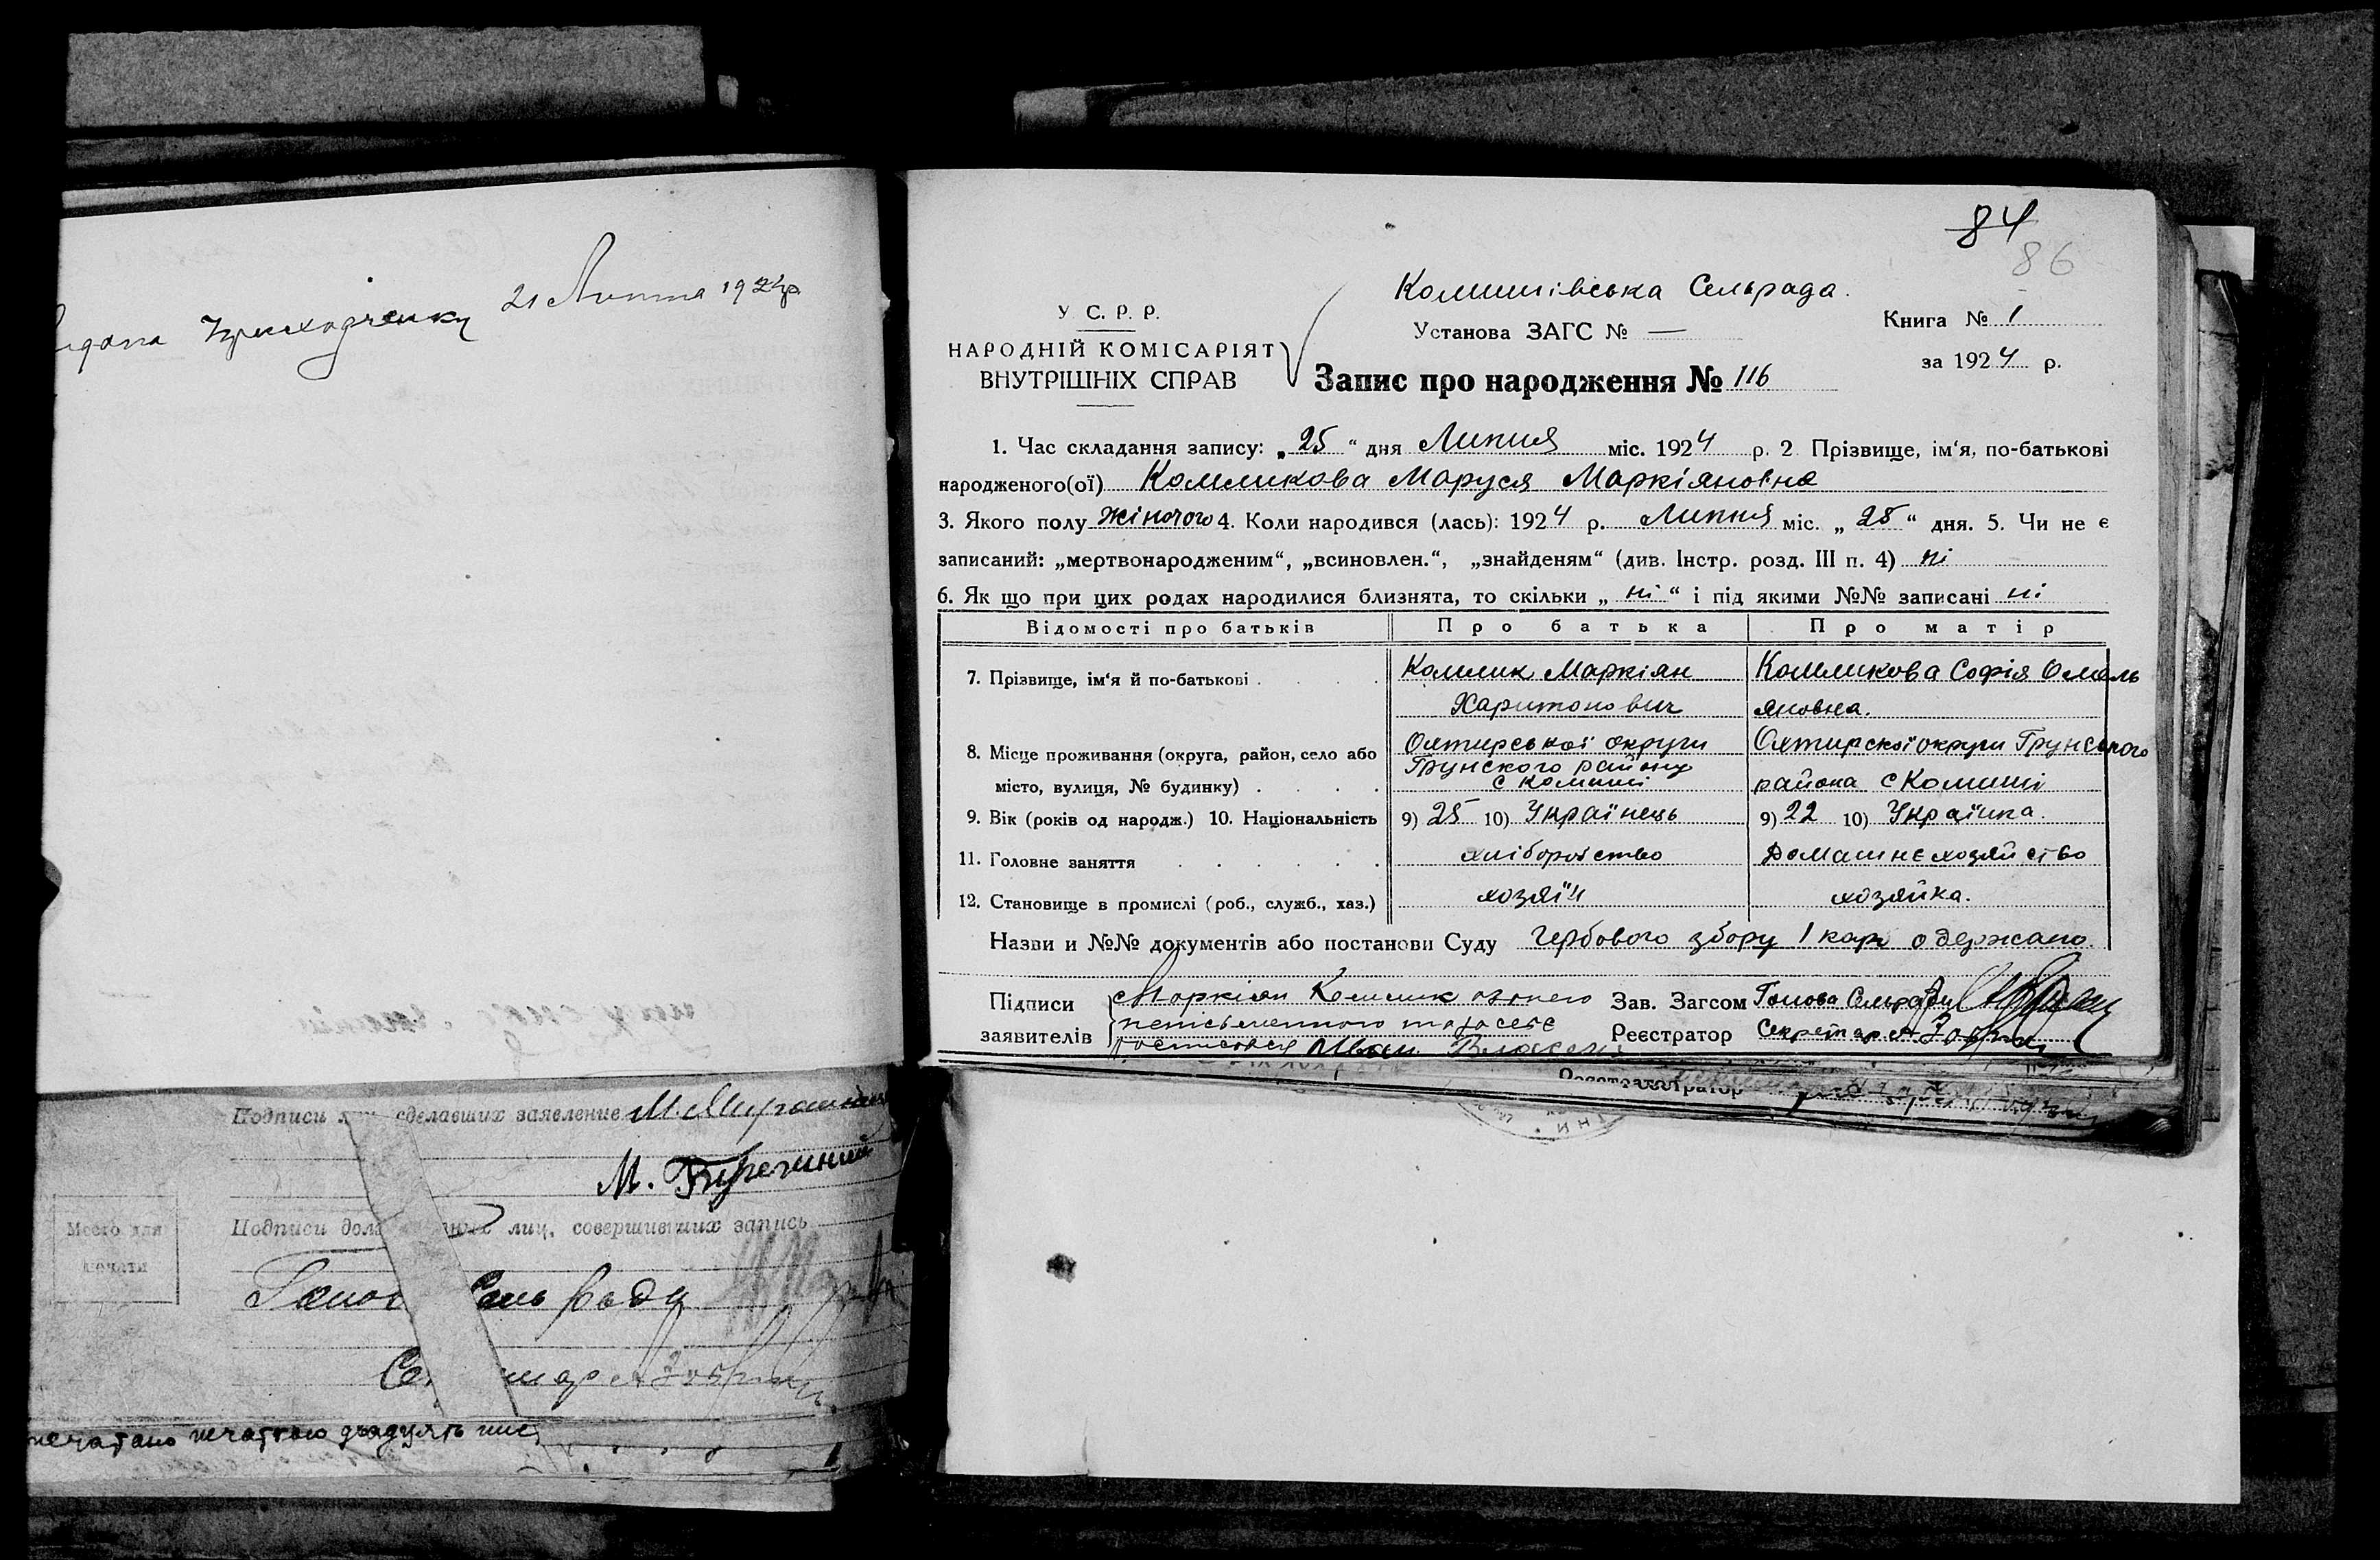 21 Липня 1924р
84
86
Комишівська Сельрада.
У. С. Р. Р.
Установа ЗАГС № —
Книга № 1
НАРОДНІЙ КОМІСАРІЯТ
ВНУТРІШНІХ СПРАВ
за 1924 р.
Запис про народження № 116
1. Час складання запису: „25“ дня Липня міс. 1924 р. 2 Прізвище, ім‘я, по-батькові
народженого(ої) Комликова Маруся Маркіяновна
3. Якого полу жіночого 4. Коли народився (лась): 1924 р. Липня міс. „25“ дня. 5. Чи не є
записаний: „мертвонародженим“, „всиновлен.“, „знайденям“ (див. Інстр. розд. III п. 4) ні
6. Як що при цих родах народилися близнята, то скільки „ні“ і під якими №№ записані ні
Відомості про батьків Про батька Про матір
7. Прізвище, ім‘я й по-батькові . . . . Комлик Маркіян Харитонович
Комликова Софія Омель
яновна.
8. Місце проживання (округа, район, село або
місто, вулиця, № будинку) . . . .
Охтирської округи
Грунского району
с Комиші
Охтирскої округи Грунського
района с Комиші
9. Вік (років од народж.) 10. Національність 9) 25 10) Українець 9) 22 10) Українка.
11. Головне заняття . . . . . . хліборобство Домашнє хозяйство
12. Становище в промислі (роб., служб., хаз.) хозяїн хозяйка.
Назви и №№ документів або постанови Суду Гербового збору 1 карб одержано.
Підписи
заявителів
Маркіян Комлик
неписьменного та за себе
росписався Иван
Зав. Загсом Голова Сельради
Реєстратор Секретар
Реєстратор
Подписи сделавших заявление
М.
Подписи лиц, совершивших запись
Место для
печати
Сель Рады
печатано печаткою двадцять